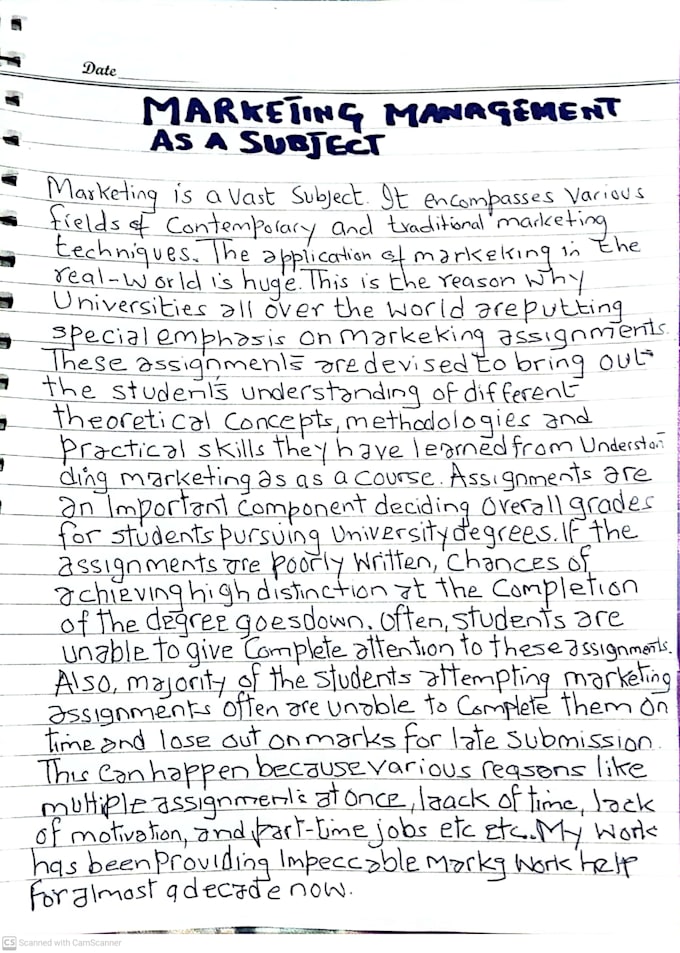 Date
MARKETING MANAGEMENT
AS A SUBJECT
Marketing is a Vast Subject. It encompasses Various
fields of Contemporary and traditional marketing
techniques. The application of markeking in the
real-world is huge. This is the reason why
Universities all over the world are putting
special emphasis on markeking assignments.
These assignments are devised to bring out
the student's understanding of different
theoretical Concepts, methodologies and
Practical skills they have learned from Understan
ding marketing as as a course. Assignments are
an Important Component deciding Overall grades
for students pursuing University degrees. If the
assignments are Poorly Written, Chances of
achieving high distinction at the Completion
of the degree goes down. Often, students are
unable to give Complete attention to these assignments.
Also, majority of the students attempting marketing
assignments often are unable to Complete them on
time and lose out on marks for late Submission.
This Can happen because various reasons like
multiple assignments at once, laack of time, lack
of motivation, and part-time jobs etc etc.. My Work
has been Providing Impeccable Markg Work help
for almost a decade now.
CS Scanned with CamScanner